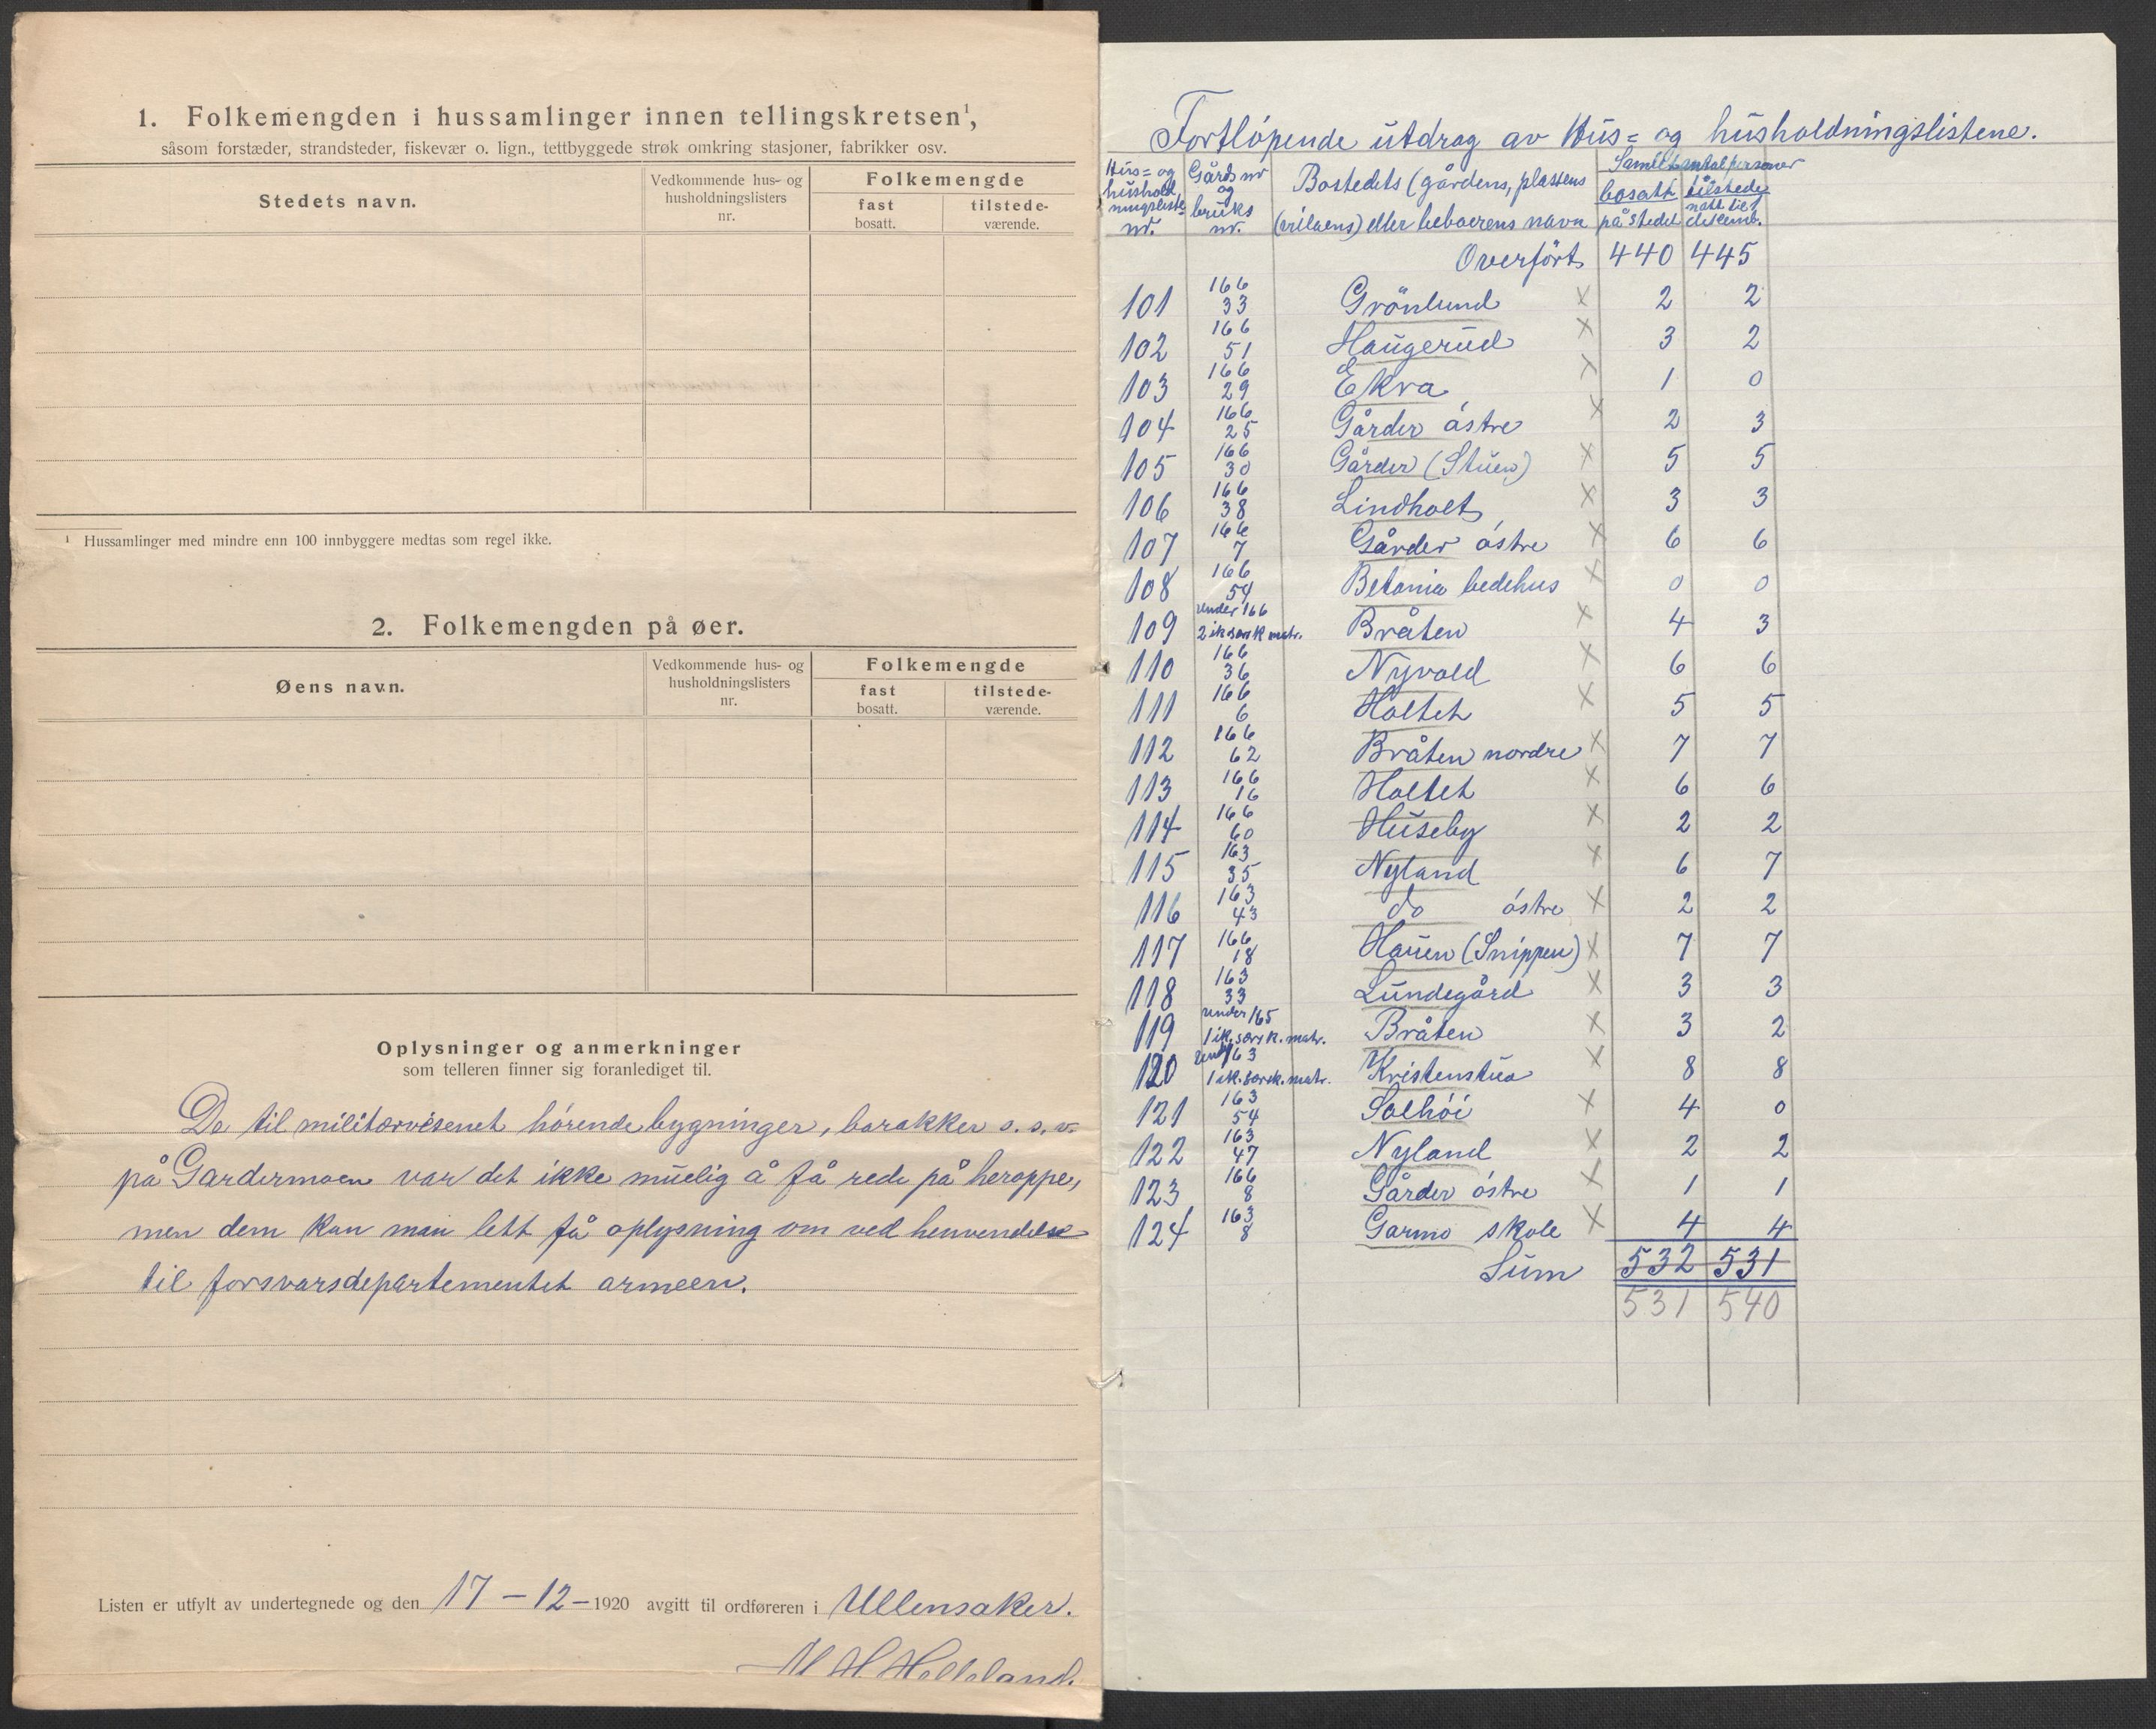 1. Folkemengden i hussamlinger innen tellingskretsen¹,
såsom forstæder, strandsteder, fiskevær o. lign., tettbyggede strøk omkring stasjoner, fabrikker osv.
Stedets navn.
Vedkommende hus- og
husholdningslisters
nr.
Folkemengde
fast
bosatt.
tilstede-
værende.
¹ Hussamlinger med mindre enn 100 innbyggere medtas som regel ikke.
2. Folkemengden på øer.
Øens navn.
Vedkommende hus- og
husholdningslisters
nr.
Folkemengde
fast
bosatt.
tilstede-
værende.
Oplysninger og anmerkninger
som telleren finner sig foranlediget til.
De til militærvesenet hörende bygninger, barakker o.s.v.
på Gardermoen var det ikke muelig å få rede på heroppe,
men dem kan man lett få oplysning om ved henvendelse
til forsvarsdepartementet armeen.
Listen er utfylt av undertegnede og den 17 - 12 - 1920 avgitt til ordføreren i Ullensaker.
M H. Helleland.
Fortlöpende utdrag av Hus= og husholdningslistene.
Hus= og
hushold
ningsliste=
nr.
Gårds nr
og
bruks
nr.
Bostedets (gårdens, plassens
(villaens) eller beboerens navn
Samlet antal personer
bosatt
på stedet
tilstede
natt til 1
desemb.
Overført 440 445
101 166 33 Grönlund x 2 2
102 166 51 Haugerud x 3 2
103 166 29 Ekra x 1 0
104 166 25 Gårder östre x 2 3
105 166 30 Gårder (Stuen) x 5 5
106 166 38 Lindholt x 3 3
107 166 7 Gårder östre x 6 6
108 166 54 Betania bedehus x 0 0
109 under 166 2 ik særsk matr. Bråten x 4 3
110 166 36 Nyvold x 6 6
111 166 6 Holtet x 5 5
112 166 62 Bråten nordre x 7 7
113 166 16 Holtet x 6 6
114 166 60 Huseby x 2 2
115 163 35 Nyland x 6 7
116 163 43 do östre x 2 2
117 166 18 Hauen (Snippen) x 7 7
118 163 33 Lundegård x 3 3
119 under 165 1 ik. særsk. matr. Bråten x 3 2
120 under 163 1 ik. særsk. matr. Kristenstua x 8 8
121 163 54 Solhöi x 4 0
122 163 47 Nyland x 2 2
123 166 8 Gårder östre x 1 1
124 163 8 Garmo skole x 4 4
Sum 532 531
531 540